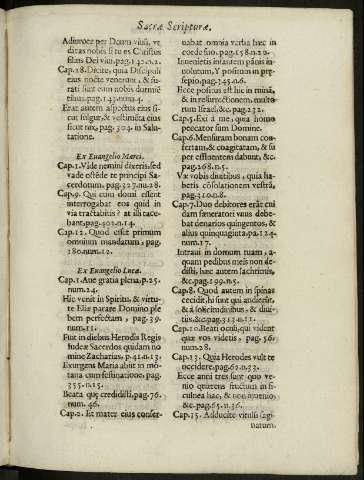 Sacræ Scripturæ.
Adiuro te per Deum viuũ, vt
dicas nobis si tu es Christus
filius Dei viui. pag. 142. n.2.
Cap. 28. Dicite, quia Discipuli
eius nocte venerunt, & fu-
rati sunt eum nobis dormiē
tibus. pag. 143. num. 4.
Erat autem aspectus eius si-
cut fulgur, & vestimēta eius
sicut nix, pag. 304. in Salu-
tatione.
Ex Euangelio Marci.
Cap. 1. Vide nemini dixeris, sed
vade ostēde te principi Sa-
cerdotum. pag. 327. nu. 28.
Cap. 9. Qui cum domi essent
interrogabat eos quid in
via tractabitis? at illi tace-
bant, pag. 302. n. 14.
Cap. 12. Quod esset primum
omnium mandatum, pag.
180. num. 12.
Ex Euangelio Lucæ.
Cap. 1. Aue gratia plena, p. 25.
num. 24.
Hic venit in Spiritu, & virtu-
te Eliæ parare Domino ple
bem perfectam, pag. 39.
num. 11.
Fuit in diebus Herodis Regis
Iudeæ Sacerdos quidam no
mine Zacharias, p. 41. n. 13.
Exurgens Maria abijt in mō-
tana cum festinatione, pag.
355. n. 15.
Beata quę credidisti, pag. 76.
num. 46.
Cap. 2. Et mater eius conser-
uabat omnia verba hæc in
corde suo, pag. 158. n. 20.
Inuenietis infantem pānis in-
uolutum, & positum in prę-
sepio. pag. 345. n. 6.
Ecce positus est hic in ruinā,
& in resurrectionem, multo-
rum Israel, &c. pag. 232.
Cap. 5. Exi à me, quia homo
peccator sum Domine.
Cap. 6. Mensuram bonam con-
fertam, & coagitatam, & su
per effluentem dabunt, &c.
pag. 268. n. 5.
Væ vobis diuitibus, quia ha-
betis cōsolationem vestrā,
pag. 310. n. 8.
Cap. 7. Duo debitores erāt cui
dam fœneratori vnus debe-
bat denarios quingentos, &
alius quinquaginta, pa. 124.
num. 17.
Intraui in domum tuam, a-
quam pedibus meis non de-
disti, hæc autem lachrimis,
&c. pag. 199. n. 5.
Cap. 8. Quod autem in spinas
cecidit, hi sunt qui audierūt,
& à solicitudinibus, & diui-
tijs, &c. pag. 313. n. 11.
Cap. 10. Beati oculi, qui vident
quæ vos videtis, pag. 56.
num. 28.
Cap. 13. Quia Herodes vult te
occidere, pag. 67. n. 32.
Ecce anni tres sunt quo ve-
nio quærens fructum in fi-
culnea hac, & non inuenio,
&c. pag. 65. n. 36.
Cap. 15. Adducite vitulũ sagi-
natum.